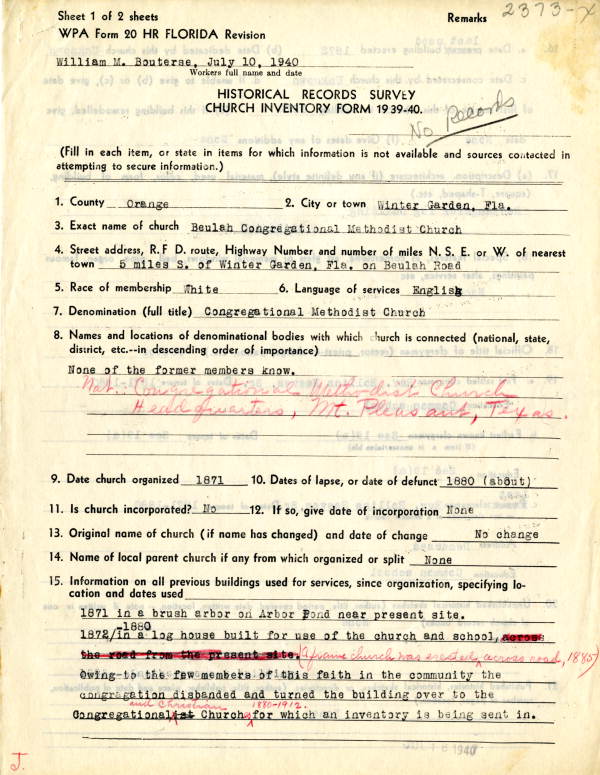 Sheet 1 of 2 sheets
Remarks 2373-X
WPA Form 20 HR FLORIDA Revision
William M. Bouterse, July 10, 1940
Workers full name and date
HISTORICAL RECORDS SURVEY
CHURCH INVENTORY FORM 1939-40.
No Records
(Fill in each item, or state in items for which information is not available and sources contacted in
attempting to secure information.)
1. County Orange 2. City or town Winter Garden, Fla.
3. Exact name of church Beulah Congregational Methodist Church
4. Street address, R.F.D. route, Highway Number and number of miles N. S. E. or W. of nearest
town 5 miles S. of Winter Garden, Fla. on Beulah Road
5. Race of membership White 6. Language of services English
7. Denomination (full title) Congregational Methodist Church
8. Names and locations of denominational bodies with which church is connected (national, state,
district, etc.--in descending order of importance)
None of the former members know.
Nat. Congregational Methodist Church
Headquarters, Mt. Pleasant, Texas.
9. Date church organized 1871 10. Dates of lapse, or date of defunct 1880 (about)
11. Is church incorporated? No 12. If so, give date of incorporation None
13. Original name of church (if name has changed) and date of change No change
14. Name of local parent church if any from which organized or split None
15. Information on all previous buildings used for services, since organization, specifying lo-
cation and dates used
1871 in a brush arbor on Arbor Pond near present site.
-1880
1872/in a log house built for use of the church and school, across
the road from the present site. (A frame church was erected, across road, 1885)
Owing to the few members of this faith in the community the
congregation disbanded and turned the building over to the
and Christian 1880-1912.
Congregationalist Church for which an inventory is being sent in.
JUL 18 1940
J.